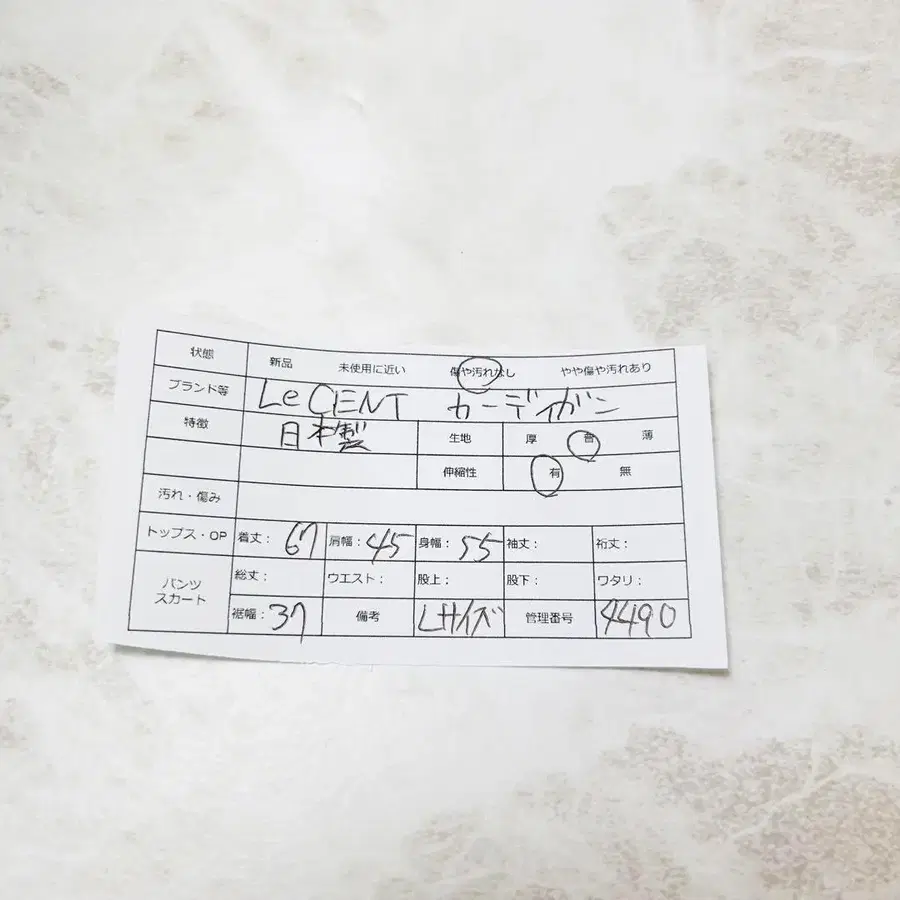 状態 新品 未使用に近い 傷や汚れなし やや傷や汚れあり
ブランド等 Le CIENT カーディガン
特徴 日本製 生地 厚 普 薄
伸縮性 有 無
汚れ・傷み
トップス・OP 着丈： 67 肩幅： 45 身幅： 55 袖丈： 裄丈：
パンツ スカート 総丈： ウエスト： 股上： 股下： ワタリ：
裾幅： 37 備考 Lサイズ 管理番号 4490